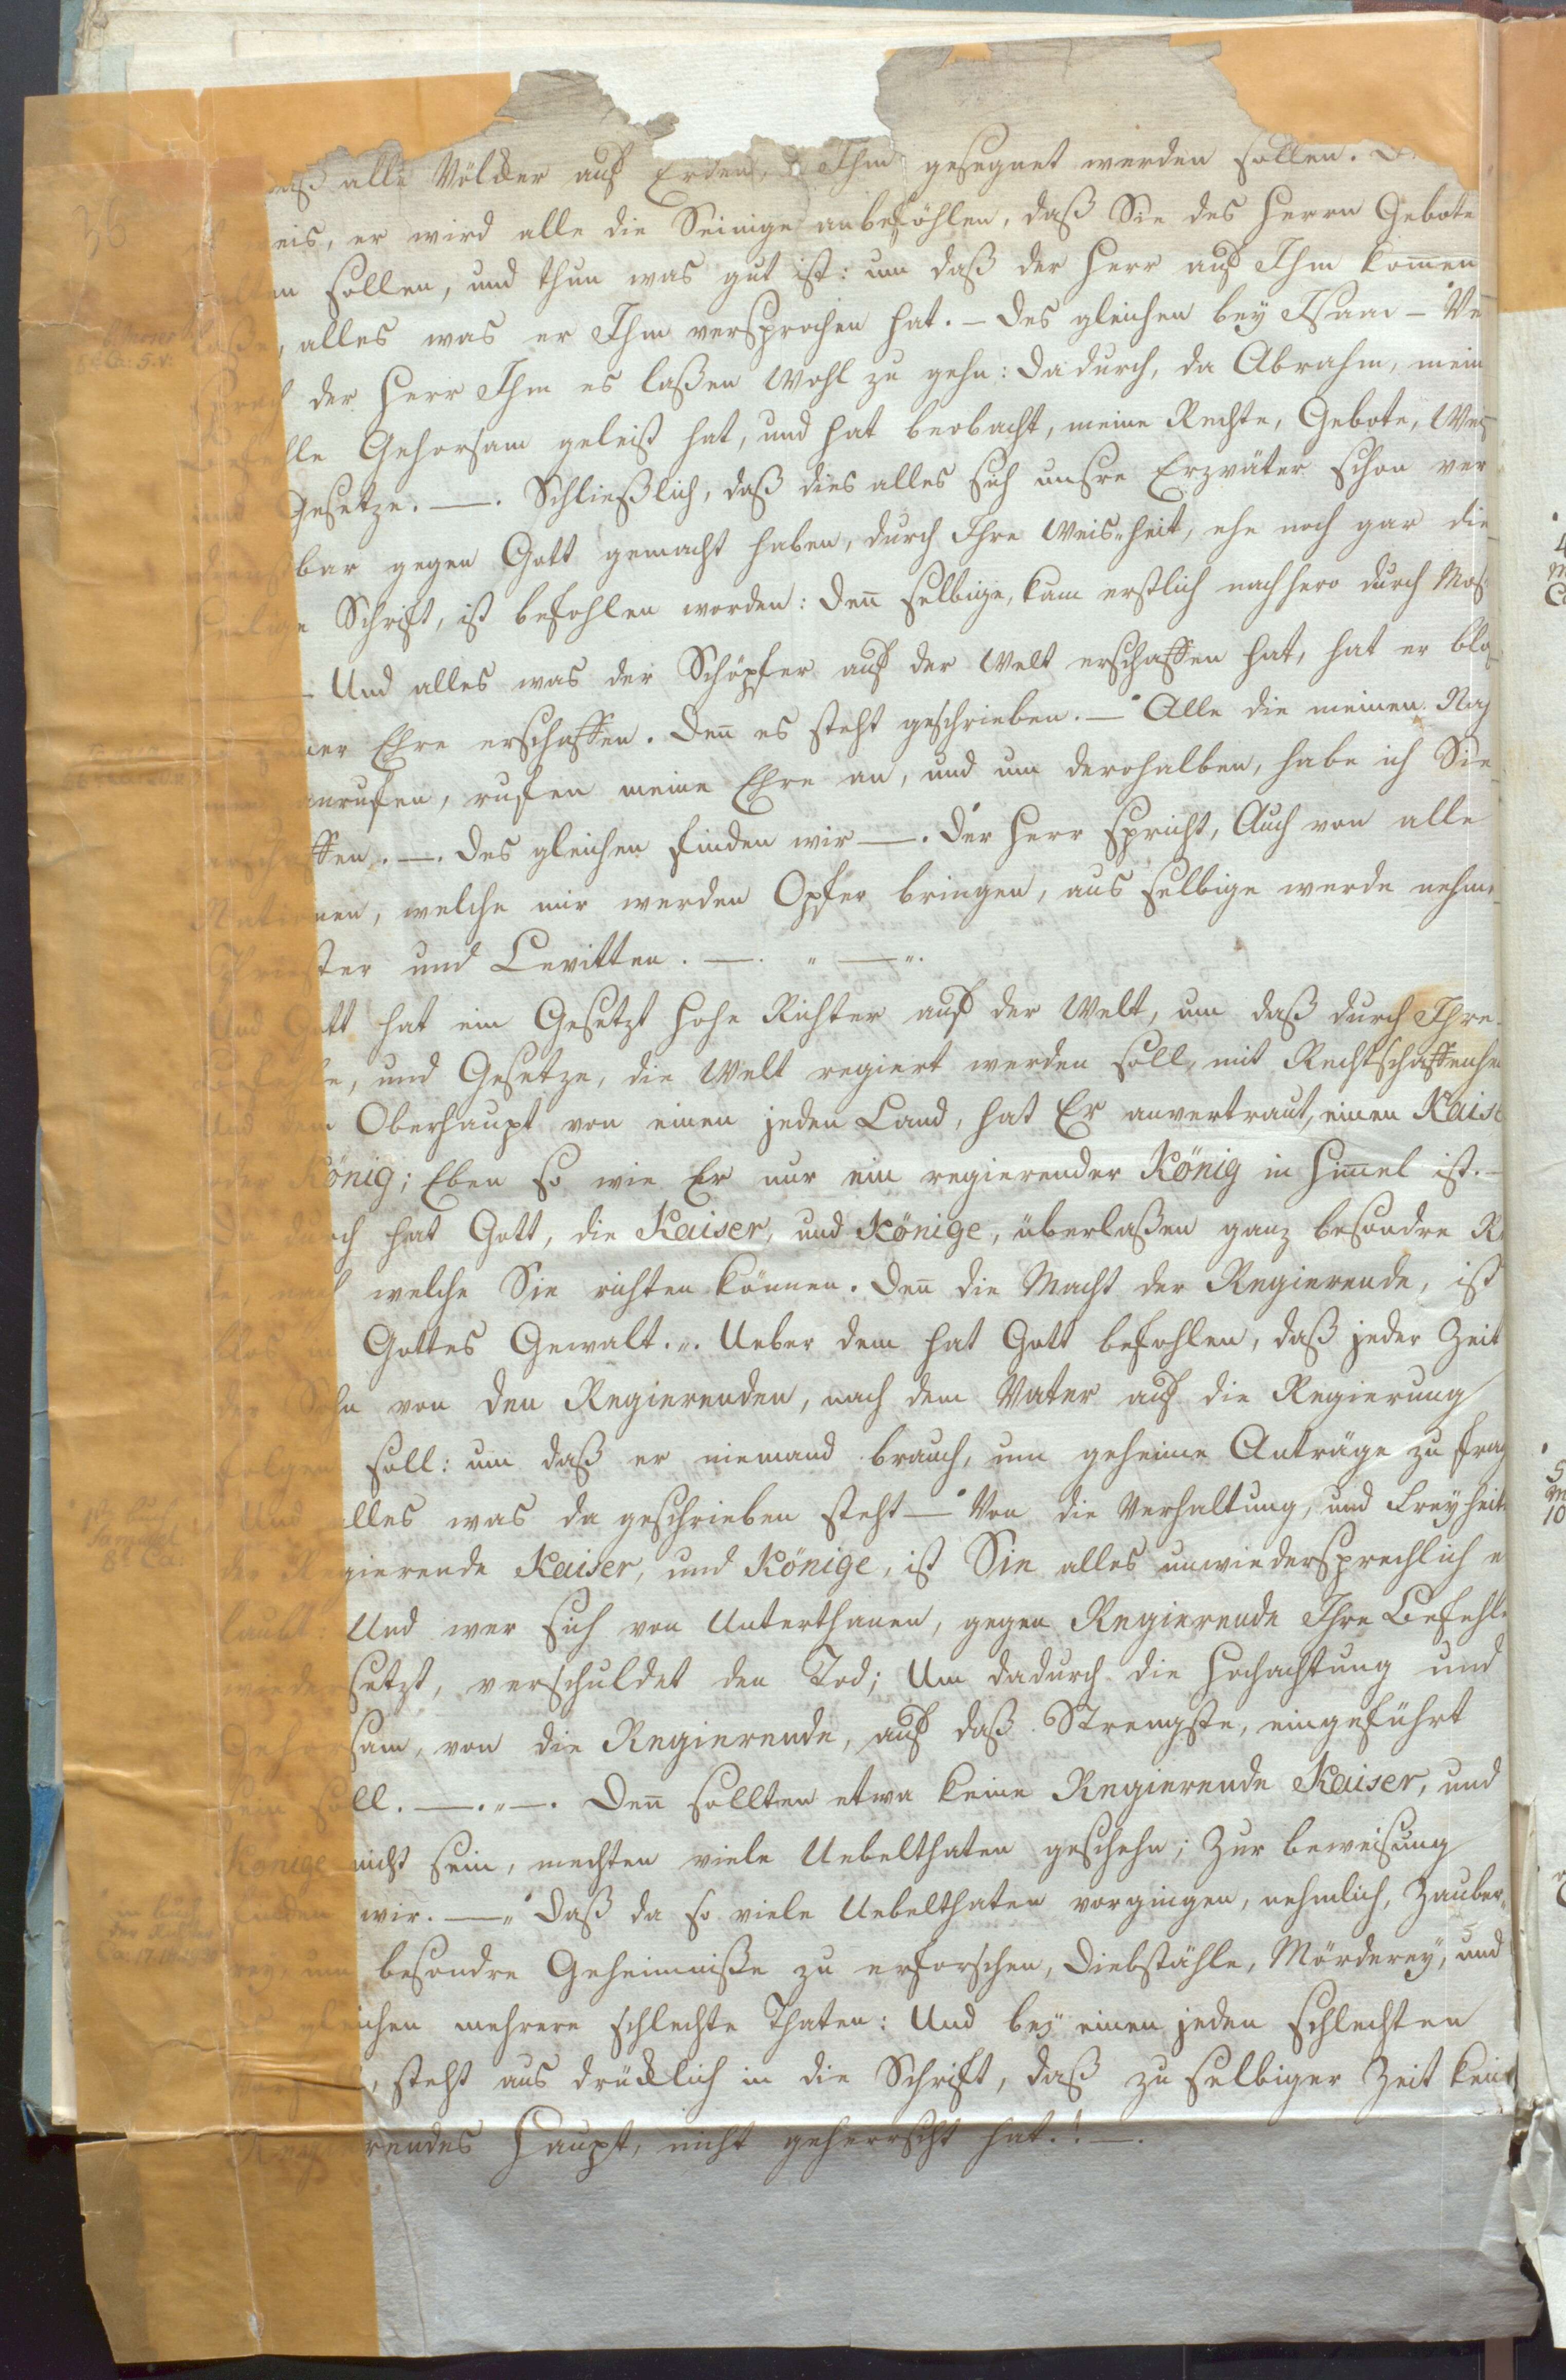 36
daß alle Völcker auf Erden, Ihm gesegnet werden sollen.
weis, er wird alle die Seinige anbeföhlen, daß Sie des Herrn Gebote
halten sollen, und thun was gut ist: um daß der Herr auf Ihm kom̄en
laße, alles was er Ihm versprochen hat. – des gleichen bey Isaac – Ver
sprach der Herr Ihm es laßen Wohl zu gehn: dadurch, da Abraham, mein
Befehle Gehorsam geleist hat, und hat beobacht, meine Rechte, Gebote,
und Gesetze. —. Schließlich, daß dies alles sich unsre Erzväter schon ver
dienstbar gegen Gott gemacht haben, durch Ihre Weis„heit, ehe noch gar die
heilige Schrift, ist befohlen worden: den̄ selbige, kam erstlich nachhero durch Mos
– Und alles was der Schöpfer auf der Welt erschaffen hat, hat er blos
zu seiner Ehre erschaffen. den̄ es steht geschrieben. — Alle die meinen Nah
men anrufen, rufen meine Ehre an, und um derohalben, habe ich Sie
erschaffen. —. des gleichen finden wir —. der Herr spricht, Auch von alle
Nationen, welche mir werden Opfer bringen, aus selbige werde nehme
Priester und Levitten. —. „ —„.
Und Gott hat ein Gesetzt hohe Richter auf der Welt, um daß durch Ihre
Befehle, und Gesetze, die Welt regiert werden soll, mit Rechtschaffenhei
Und dem Oberhaupt von einen jeden Land, hat Er anvertraut, einen Kaise
oder König; Eben so wie Er nur ein regierender König in Him̄el ist. –
Da durch hat Gott, die Kaiser, und Könige, überlaßen ganz besondre Re
nach welche Sie richten können. den̄ die Macht der Regierende, ist
blos in Gottes Gewalt. „. Ueber dem hat Gott befohlen, daß jeder Zeit
der Sohn von den Regierenden, nach dem Vater auf die Regierung
folgen soll: um daß er niemand brauch, um geheime Anträge zu frag
1tes Buch
Samuel
8t Ca:
Und alles was da geschrieben steht — Von die Verhaltung, und Freyheit
der Regierende Kaiser, und Könige, ist Sie alles unwiedersprechlich er
laubt: Und wer sich von Unterthanen, gegen Regierende Ihre Befehle
wiedersetzt, verschuldet den Tod; Um dadurch die Hochachtung und
Gehorsam, von die Regierende, auf daß Strengste, eingeführt
sein soll. —.„—. den̄ sollten etwa keine Regierende Kaiser, und
Konige nicht sein, mechten viele Uebelthaten geschehn; Zur beweisung
im buch
der Richter
Ca: 17.
finden wir. —„ daß da so viele Uebelthaten vorgingen, nehmlich, Zauber„
rey, um besondre Geheimniße zu erforschen, diebstähle, Mörderey, und
gleichen mehrere schlechte Thaten: Und bey einen jeden schlechten
steht aus drücklich in die Schrift, daß zu selbiger Zeit kein
Regierendes Haupt, nicht geherrscht hat.! —.